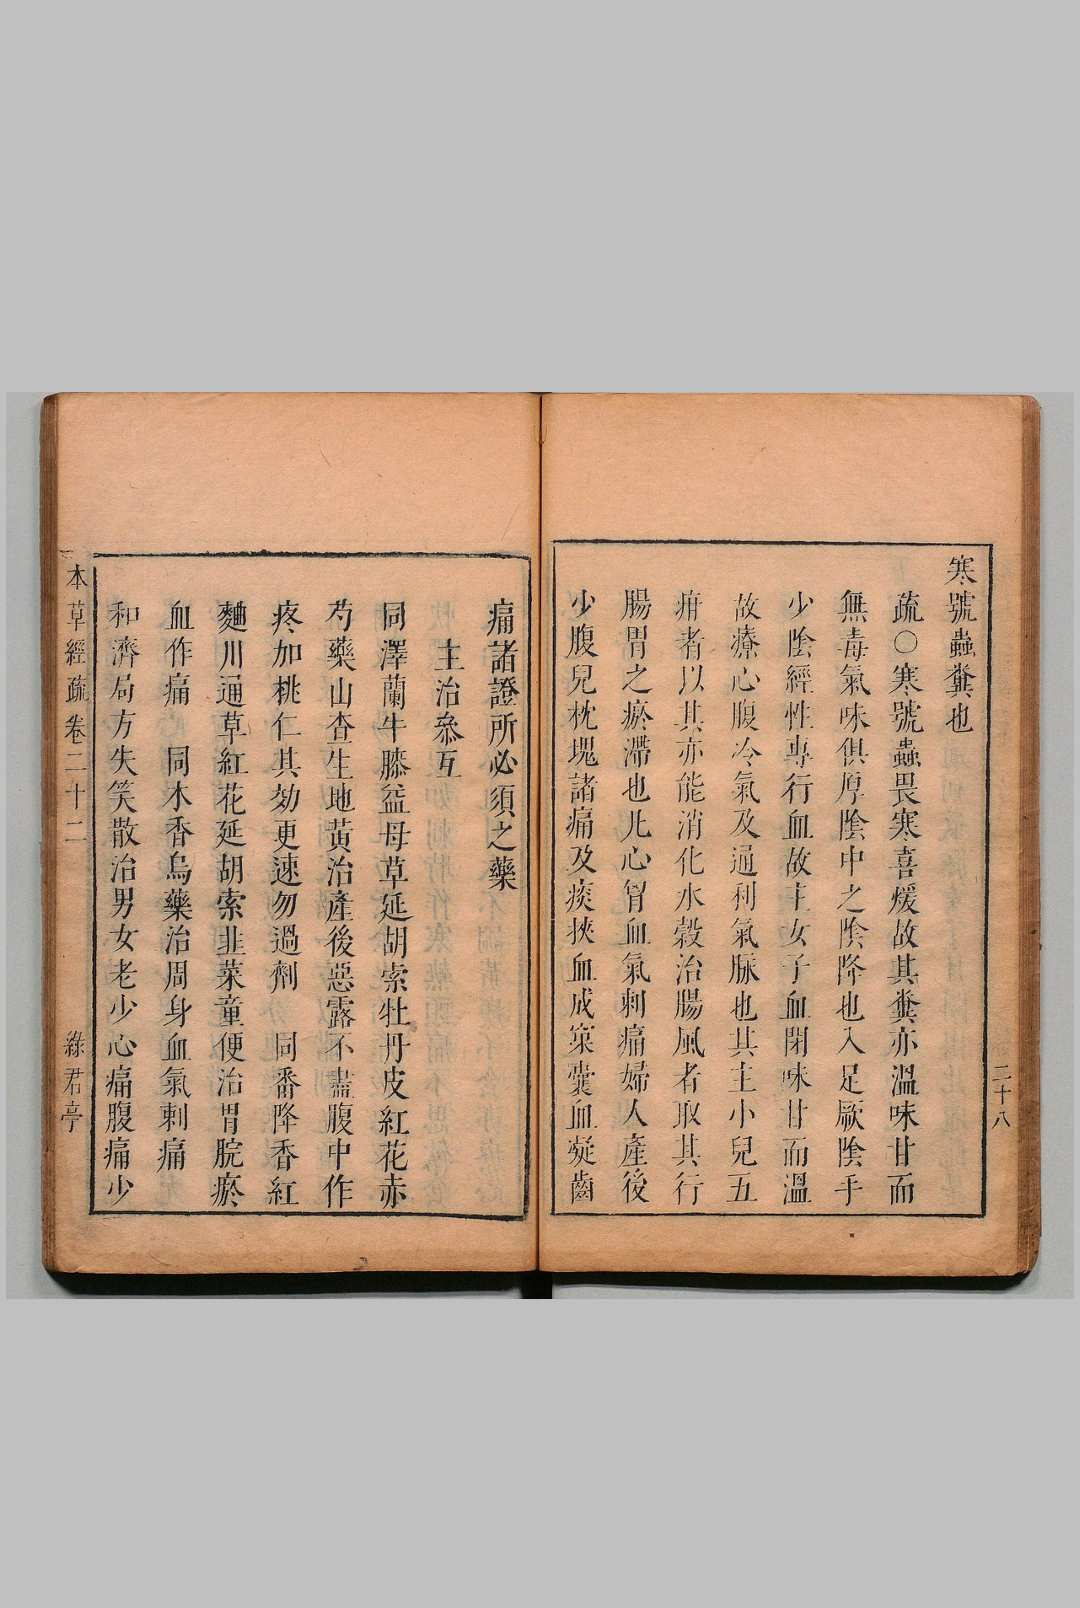 寒號蟲糞也
疏○寒號蟲畏寒喜煖故其糞亦溫味甘而
無毒氣味俱厚陰中之陰降也入足厥陰手
少陰經性專行血故主女子血閉味甘而溫
故療心腹冷氣及通利氣脈也其主小兒五
疳者以其亦能消化水穀治腸風者取其行
腸胃之瘀滯也凡心胷血氣刺痛婦人產後
少腹兒枕塊諸痛及痰挾血成窠囊血凝齒
二十八
痛諸證所必須之藥
主治叅互
同澤蘭牛膝益母草延胡索牡丹皮紅花赤
芍藥山查生地黃治產後惡露不盡腹中作
疼加桃仁其効更速勿過劑　同番降香紅
麯川通草紅花延胡索韭菜童便治胃脘瘀
血作痛　同木香烏藥治周身血氣刺痛
和濟局方失笑散治男女老少心痛腹痛少
本草經疏卷二十二
綠君亭